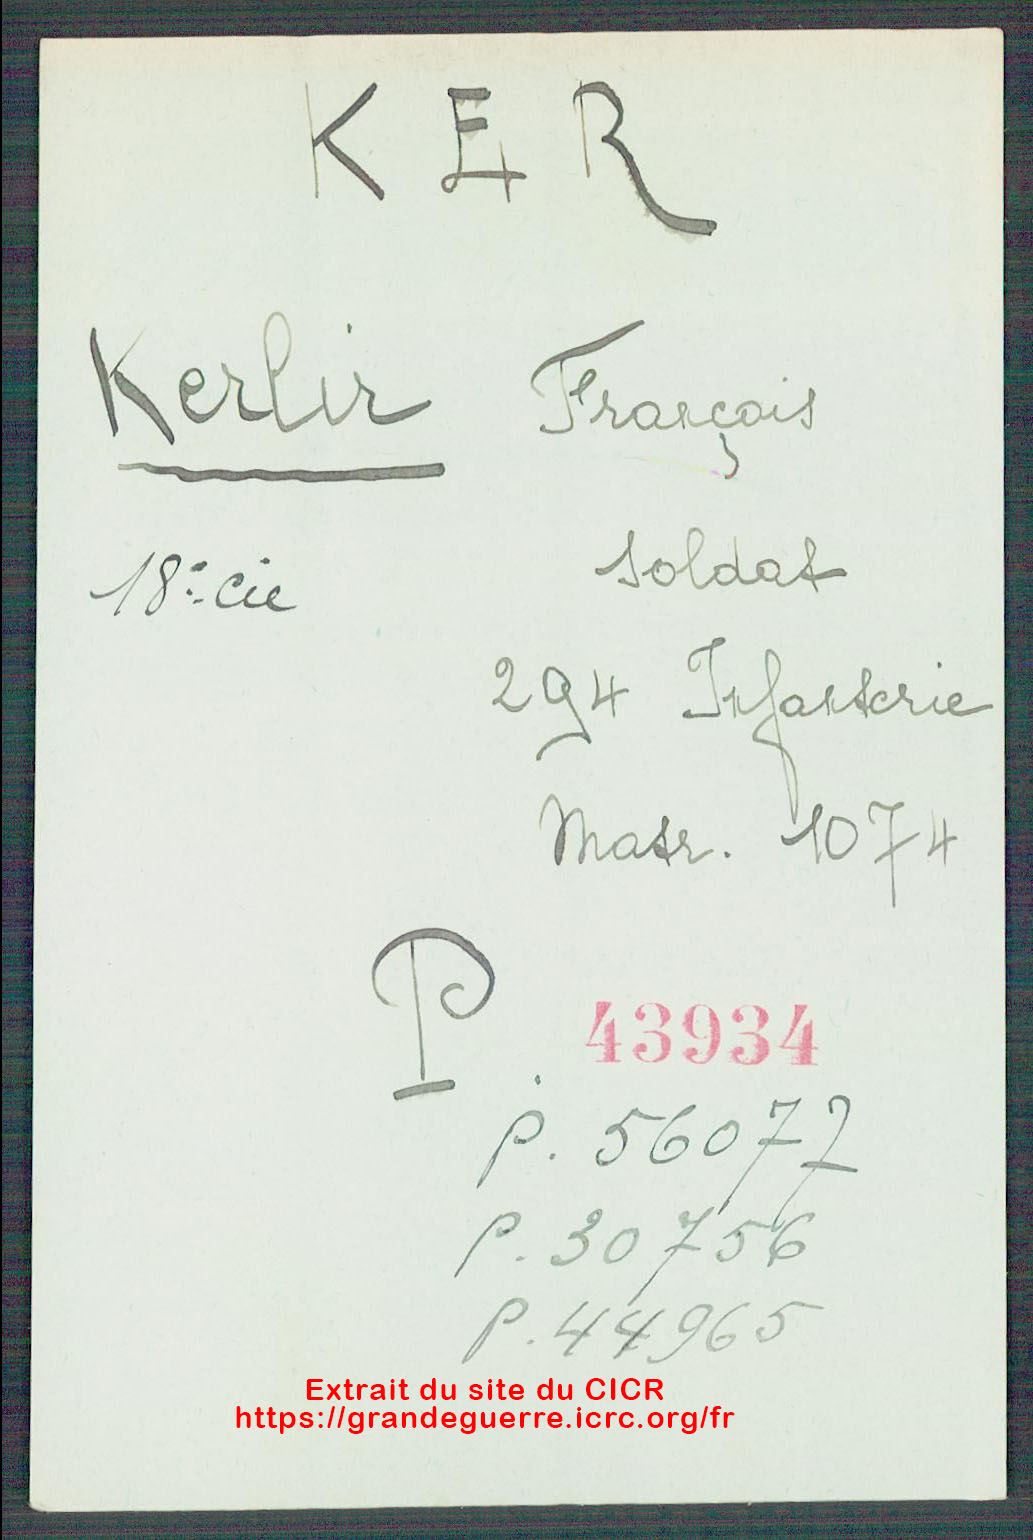 KER
Kerlir François
18e cie soldat
294 Infanterie
Matr. 1074
P 43934
P. 56077
P. 30756
P. 44965
Extrait du site du CICR
https://grandeguerre.icrc.org/fr